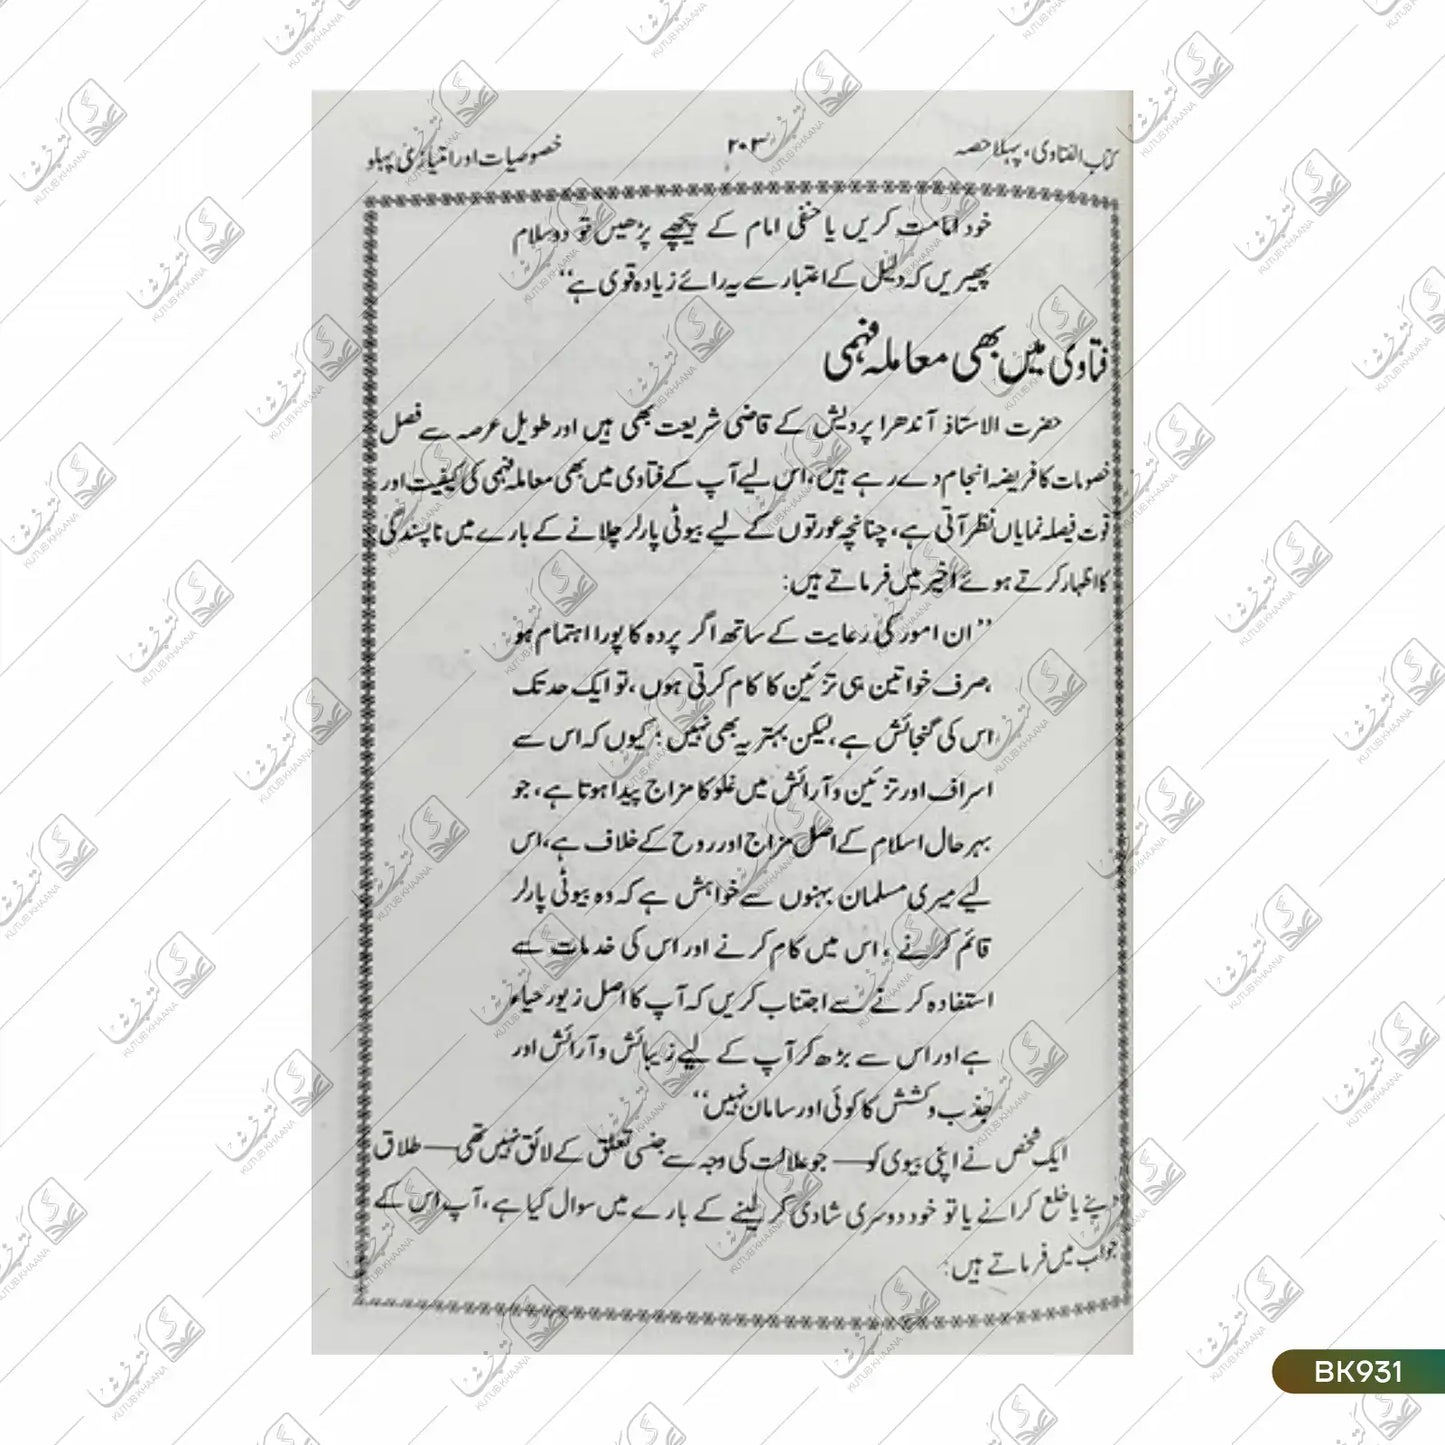 کتاب الفتاوی، پہلا حصہ ۲۰۳ خصوصیات اور امتیازی پہلو
خود امامت کریں یا حنفی امام کے پیچھے پڑھیں تو دو سلام
پھیریں کہ دلیل کے اعتبار سے یہ رائے زیادہ قوی ہے‘‘
فتاوی میں بھی معاملہ فہمی
حضرت الاستاذ آندھرا پردیش کے قاضی شریعت بھی ہیں اور طویل عرصہ سے فصل
خصومات کا فریضہ انجام دے رہے ہیں، اس لیے آپ کے فتاوی میں بھی معاملہ فہمی کی کیفیت اور
قوت فیصلہ نمایاں نظر آتی ہے، چنانچہ عورتوں کے لیے بیوٹی پارلر چلانے کے بارے میں ناپسندگی
کا اظہار کرتے ہوئے اخیر میں فرماتے ہیں:
’’ان امور کی رعایت کے ساتھ اگر پردہ کا پورا اہتمام ہو
،صرف خواتین ہی تزئین کا کام کرتی ہوں، تو ایک حد تک
اس کی گنجائش ہے، لیکن بہتر یہ بھی نہیں؛ کیوں کہ اس سے
اسراف اور تزئین و آرائش میں غلو کا مزاج پیدا ہوتا ہے، جو
بہر حال اسلام کے اصل مزاج اور روح کے خلاف ہے، اس
لیے میری مسلمان بہنوں سے خواہش ہے کہ وہ بیوٹی پارلر
قائم کرنے، اس میں کام کرنے اور اس کی خدمات سے
استفادہ کرنے سے اجتناب کریں کہ آپ کا اصل زیور حیاء
ہے اور اس سے بڑھ کر آپ کے لیے زیبائش و آرائش اور
جذب و کشش کا کوئی اور سامان نہیں‘‘
ایک شخص نے اپنی بیوی کو — جو علالت کی وجہ سے جنسی تعلق کے لائق نہیں تھی — طلاق
دینے یا خلع کرانے یا تو خود دوسری شادی کر لینے کے بارے میں سوال کیا ہے، آپ اس کے
جواب میں فرماتے ہیں:
BK931
کتب خانہ
KUTUB KHAANA